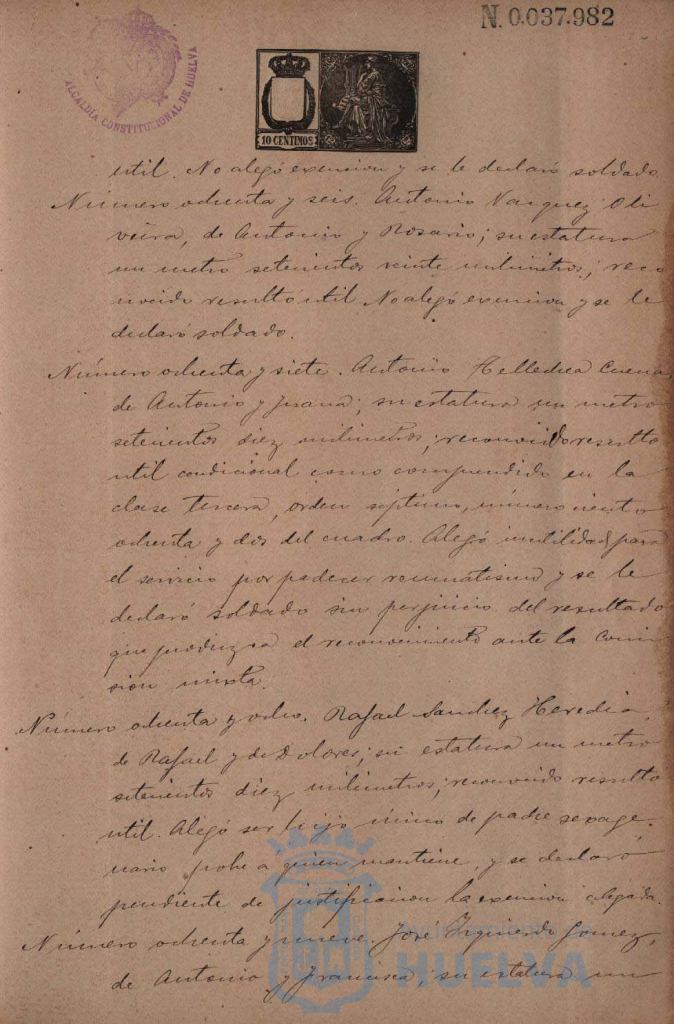 N. 0.037.982
ALCALDÍA CONSTITUCIONAL DE HUELVA
10 CENTIMOS
util. No alegó exencion y se le declaró soldado.
Número ochenta y seis. Antonio Vazquez Oli
veira, de Antonio y Rosario; su estatura
un metro setecientos veinte milimetros; reco
nocido resultó util. No alegó exencion y se le
declaró soldado.
Número ochenta y siete. Antonio Cuenca
de Antonio y Juana; su estatura un metro
setecientos diez milimetros; reconocido resultó
util condicional como comprendido en la
clase tercera, orden septimo, número ciento
ochenta y dos del cuadro. Alegó inutilidad para
el servicio por padecer reumatismo y se le
declaró soldado sin perjuicio del resultado
que produzca el reconocimiento ante la Comi
sion mixta.
Número ochenta y ocho. Rafael Sanchez Heredia,
de Rafael y de Dolores; su estatura un metro
setecientos diez milimetros; reconocido resultó
util. Alegó ser hijo único de padre sexage-
nario pobre a quien mantiene, y se declaró
pendiente de justificacion la exencion alegada.
Número ochenta y nueve. José Izquierdo Gomez,
de Antonio y Francisca; su estatura un
HUELVA